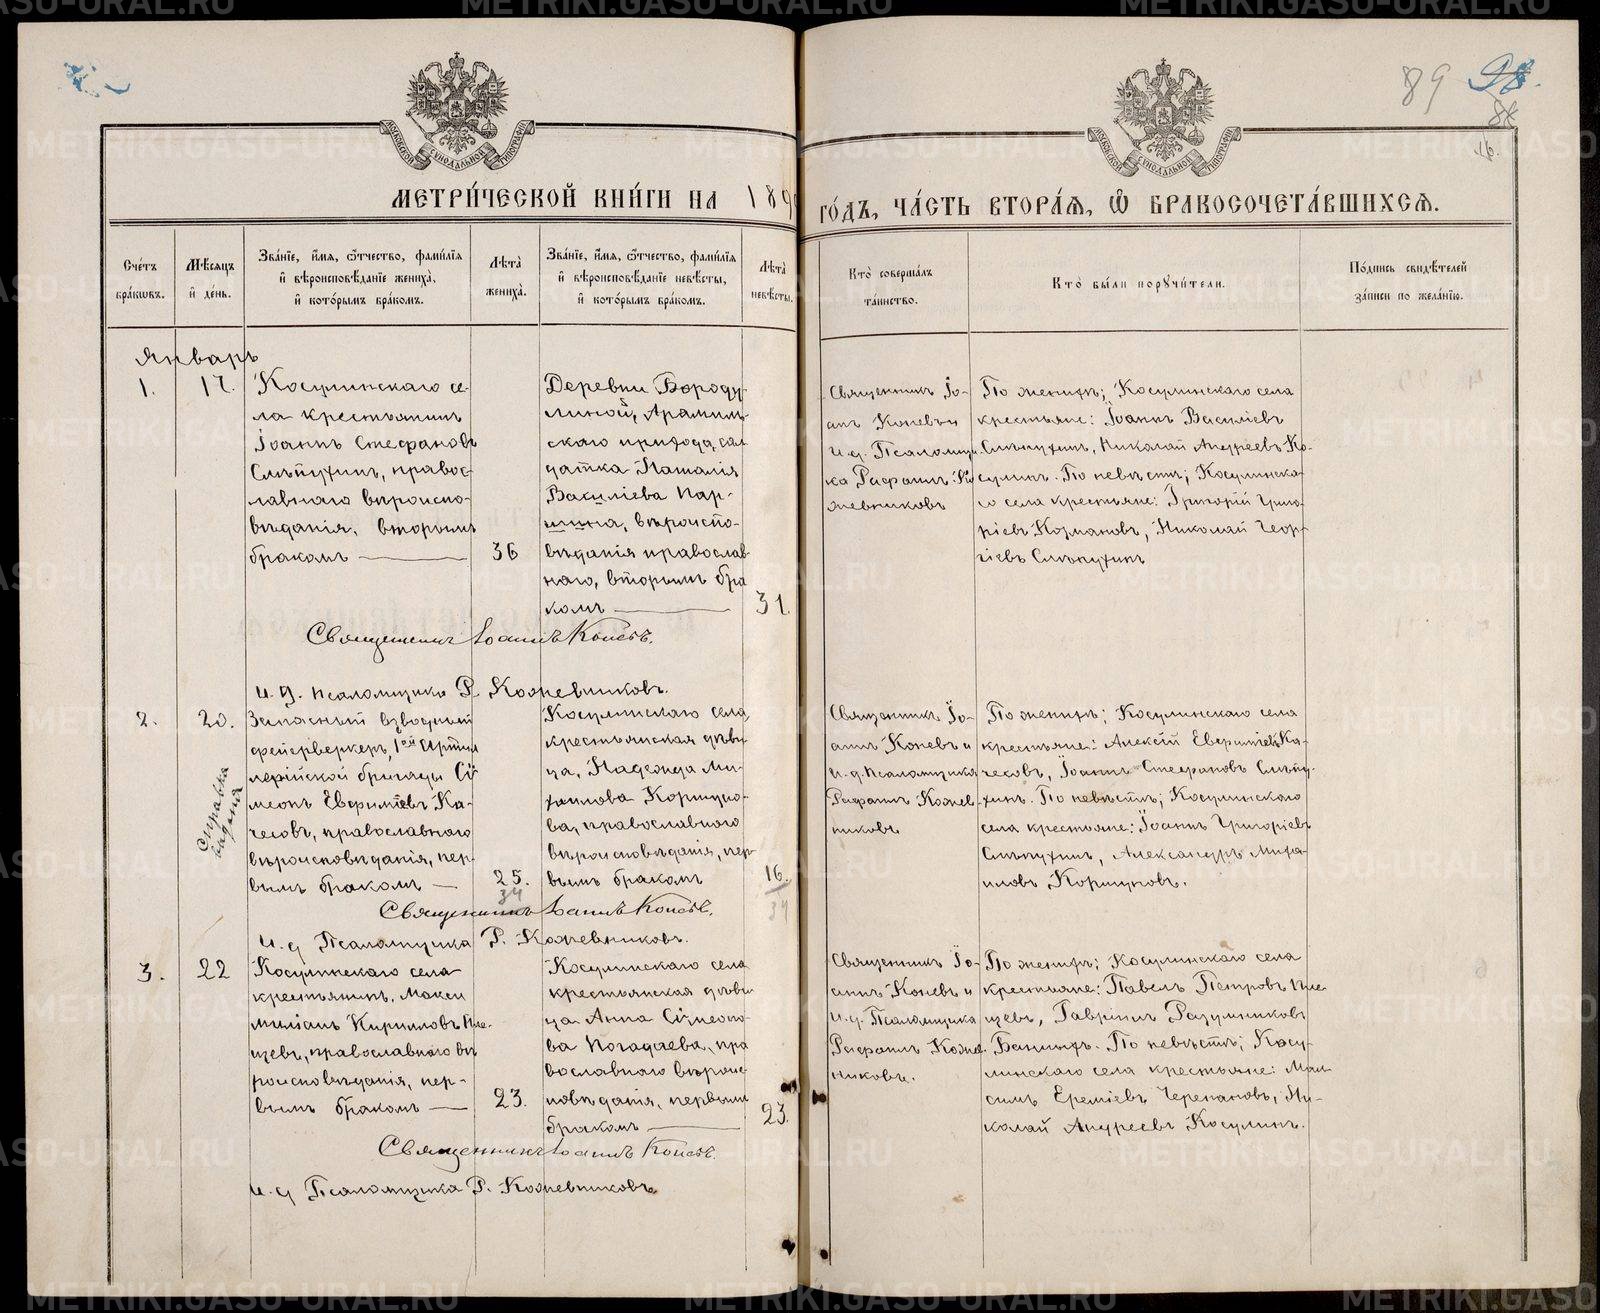 МЕТРИ́ЧЕСКОЙ КНИ́ГИ НА 189
ГО́ДЪ, ЧА́СТЬ ВТОРА́Ѧ, Ѿ БРАКОСОЧЕТА́ВШИХСѦ.
Сче́тъ бра́кѡвъ.
Мѣсѧцъ и҆ де́нь.
Зва́нїе, и҆́мѧ, ѻ҆́тчество, фами́лїѧ
и҆ вѣроисповѣ́данїе жениха̀,
и҆ кото́рымъ бра́комъ.
Лѣта̀ жениха̀.
Зва́нїе, и҆́мѧ, ѻ҆́тчество, фами́лїѧ
и҆ вѣроисповѣ́данїе невѣ́сты,
и҆ кото́рымъ бра́комъ.
Лѣта̀ невѣ́сты.
Кто̀ соверша́лъ та́инство.
Кто̀ бы́ли порꙋчи́тели.
По́дпись свидѣ́телей
за́писи по жела́нїю.
Январь
1.
17.
Косулинскаго се-
ла крестьянинъ
Іоаннъ Стефановъ
Слѣпухинъ, право-
славнаго вѣроиспо-
вѣданія, вторымъ
бракомъ
36
Деревни Бороду-
линой, Арамиль-
скаго прихода, сол-
датка Наталія
Василіева Пар-
шина, вѣроиспо-
вѣданія православ-
наго, вторымъ бра
комъ
31.
Священникъ Іо-
аннъ Коневъ и
и.д. Псаломщи
ка Рафаилъ Ко
жевниковъ
По женихѣ; Косулинскаго села
крестьяне: Іоаннъ Василіевъ
Слѣпухинъ, Николай Андреевъ Ко-
сулинъ. По невѣстѣ; Косулинска-
го села крестьяне: Григорій Григо-
ріевъ Кормановъ, Николай Геор-
гіевъ Слѣпухинъ
Священникъ Іоаннъ Коневъ.
и.д. псаломщика Р. Кожевниковъ.
2.
20.
Справка
выдана
Запасный взводный
фейерверкеръ, 1ой Артил
лерійской бригады Си
меонъ Евфиміевъ Ка-
чесовъ, православнаго
вѣроисповѣданія, пер-
вымъ бракомъ
25.
34
Косулинскаго села,
крестьянская дѣви
ца, Надежда Ми-
хаилова Коршуно-
ва, православнаго
вѣроисповѣданія, пер
вымъ бракомъ
16.
34
Священникъ Іо-
аннъ Коневъ и
и.д. псаломщика
Рафаилъ Кожев
никовъ
По женихѣ; Косулинскаго села
крестьяне: Алексій Евфиміевъ Ка-
чесовъ, Іоаннъ Стефановъ Слѣпу-
хинъ. По невѣстѣ; Косулинскаго
села крестьяне: Іоаннъ Григоріевъ
Слѣпухинъ, Александръ Миха-
иловъ Коршуновъ.
Священникъ Іоаннъ Коневъ.
и.д. Псаломщика Р. Кожевниковъ.
3.
22
Косулинскаго села
крестьянинъ, Макси
миліанъ Кирилловъ Пле-
щевъ, православнаго вѣ
роисповѣданія, пер-
вымъ бракомъ
23.
Косулинскаго села
крестьянская дѣви
ца Анна Симеоно-
ва Погадаева, пра
вославнаго вѣроис-
повѣданія, первымъ
бракомъ
23.
Священникъ Іо-
аннъ Коневъ и
и.д. Псаломщика
Рафаилъ Коже
никовъ.
По женихѣ; Косулинскаго села
крестьяне: Павелъ Петровъ Пле
щевъ, Гавріилъ Разумниковъ
Банныхъ. По невѣстѣ; Косу-
линскаго села крестьяне: Мак
симъ Ереміевъ Черепановъ, Ни-
колай Андреевъ Косулинъ.
Священникъ Іоаннъ Коневъ.
и.д. Псаломщика Р. Кожевниковъ.
89
98.
METRIKI.GASO-URAL.RU